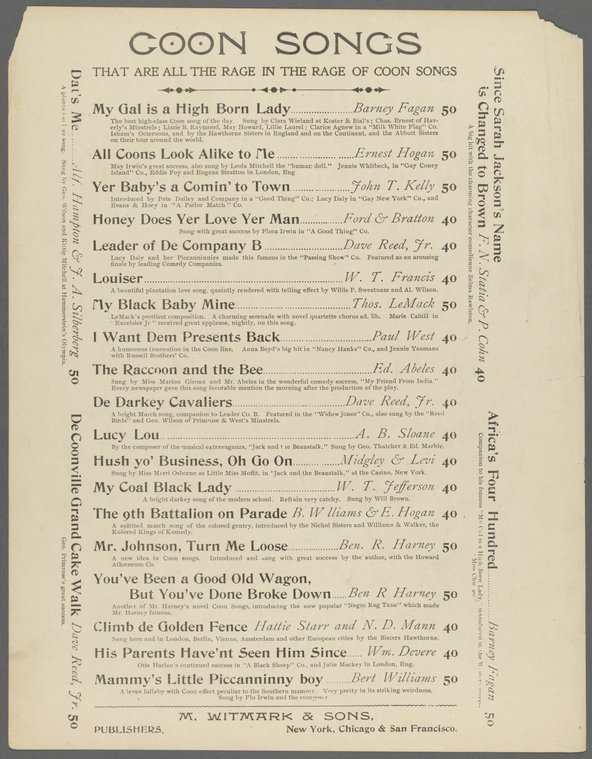 COON SONGS
THAT ARE ALL THE RAGE IN THE RAGE OF COON SONGS
My Gal is a High Born Lady............Barney Fagan 50
The best high-class Coon song of the day Sung by Clara Wieland at Koster & Bial's; Chas. Ernest of Hav-
erly's Minstrels; Lizzie B. Raymond, May Howard, Lillie Laurel; Clarice Agnew in a "Milk White Flag" Co.
Isham's Octoroons, and by the Hawthorne Sisters in England and on the Continent, and the Abbott Sisters
on their tour around the world.
All Coons Look Alike to Me ..................Ernest Hogan 50
May Irwin's great success, also sung by Leola Mitchell the "human doll." Jennie Whitbeck, in "Gay Coney
Island" Co., Eddie Foy and Eugene Stratton in London, Eng.
Yer Baby's a Comin' to Town ...............John T. Kelly 50
Introduced by Pete Dailey and Company in a "Good Thing" Co.; Lucy Daly in "Gay New York" Co., and
Evans & Hoey in "A Parlor Match" Co.
Honey Does Yer Love Yer Man............Ford & Bratton 40
Sung with great success by Flora Irwin in "A Good Thing" Co.
Leader of De Company B.....................Dave Reed, Jr. 40
Lucy Daly and her Piccanninnies made this famous in the "Passing Show" Co. Featured as an arousing
finale by leading Comedy Companies.
Louiser .............................................W. T. Francis 40
A beautiful plantation love song, quaintly rendered with telling effect by Willis P. Sweatnam and Al. Wilson.
My Black Baby Mine.........................Thos. LeMack 50
LeMack's prettiest composition. A charming serenade with novel quartette chorus ad. lib. Marie Cahill in
"Excelsior Jr" received great applause, nightly, on this song.
I Want Dem Presents Back.....................Paul West 40
A humorous innovation in the Coon line. Anna Boyd's big hit in "Nancy Hanks" Co., and Jennie Yeamans
with Russell Brothers' Co.
The Raccoon and the Bee.........................Ed. Abeles 40
Sung by Miss Marion Giroux and Mr. Abeles in the wonderful comedy success, "My Friend From India."
Every newspaper gave this song favorable mention the morning after the production of the play.
De Darkey Cavaliers...........................Dave Reed, Jr. 40
A bright March song, companion to Leader Co. B. Featured in the "Widow Jones" Co., also sung by the "Reed
Birds" and Geo. Wilson of Primrose & West's Minstrels.
Lucy Lou..........................................A. B. Sloane 40
By the composer of the musical extravaganza, "Jack and the Beanstalk." Sung by Geo. Thatcher & Ed. Marble.
Hush yo' Business, Oh Go On............Midgley & Levi 40
Sung by Miss Merri Osborne as Little Miss Moffit, in "Jack and the Beanstalk," at the Casino, New York.
My Coal Black Lady ........................W. T. Jefferson 40
A bright darkey song of the modern school. Refrain very catchy. Sung by Will Brown.
The 9th Battalion on Parade B. Williams & E. Hogan 40
A spirited march song of the colored gentry, introduced by the Nichol Sisters and Williams & Walker, the
Kolored Kings of Komedy.
Mr. Johnson, Turn Me Loose...............Ben. R. Harney 50
A new idea in Coon songs. Introduced and sung with great success by the author, with the Howard
Athenæum Co.
You've Been a Good Old Wagon,
But You've Done Broke Down......Ben R Harney 50
Another of Mr. Harney's novel Coon Songs, introducing the now popular "Negro Rag Time" which made
Mr. Harney famous.
Climb de Golden Fence Hattie Starr and N. D. Mann 40
Sung here and in London, Berlin, Vienna, Amsterdam and other European cities by the Sisters Hawthorne.
His Parents Have'nt Seen Him Since...... Wm. Devere 40
Otis Harlan's continued success in "A Black Sheep" Co., and Julie Mackey in London, Eng.
Mammy's Little Piccanninny boy ......... Bert Williams 50
A levee lullaby with Coon effect peculiar to the Southern mammy. Very pretty in its striking weirdness.
Sung by Flo Irwin and the composer
M. WITMARK & SONS,
PUBLISHERS, New York, Chicago & San Francisco.
Dat's Me.........Alf. Hampton & J. A. Silberberg 50
A plantation love song. Sung by Geo. Wilson and Kittie Mitchell at Hammerstein's Olympia.
De Coonville Grand Cake Walk Dave Reed, Jr. 50
Geo. Primrose's great success.
Since Sarah Jackson's Name
is Changed to Brown F. N. Slatia & P. Cohn 40
A big hit with the charming character comedienne Zelma Rawlston.
Africa's Four Hundred .........Barney Fagan 50
Companion to his famous "My Gal is a High Born Lady,"